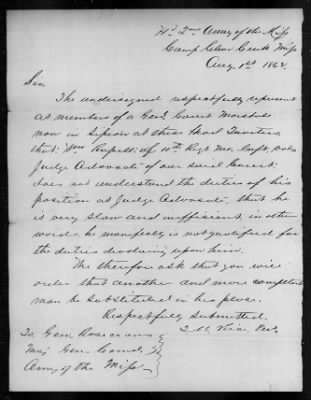 Hd 2nd Army of the Miss
Camp Clear Creek Miss
Aug 1st 1862.
Sir
The undersigned respectfully represent
as members of a Genl Court Martial
now in Session at these Head Quarters
that Wm of 10th Regt Mo.
Judge Advocate of our said Court
does not understand the duties of his
position as Judge Advocate, that he
is very slow and inefficient, in other
words he manifestly is not qualified for
the duties devolving upon him.
We therefore ask that you will
order that another and more competent
man be substituted in his place.
Respectfully submitted.
To Gen Rosecrans
Maj Gen Comdg
Army of the Miss